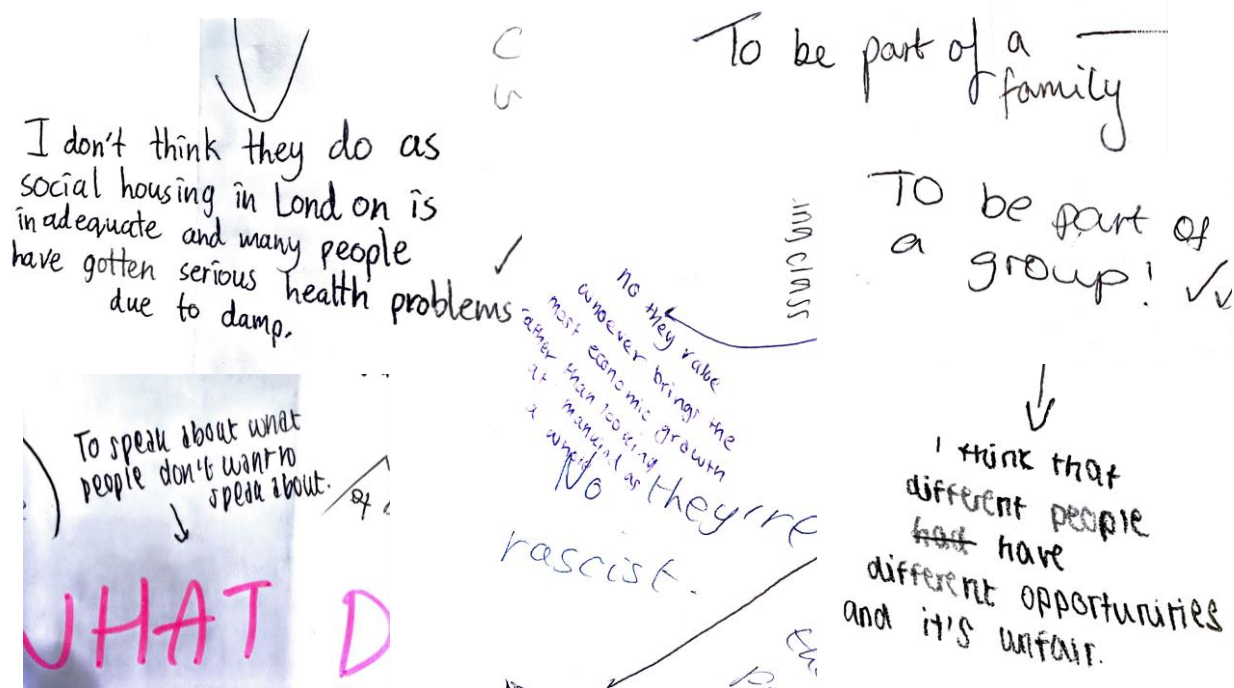 I don't think they do as
social housing in London is
inadequate and many people
have gotten serious health problems
due to damp.
To be part of a
family
TO be part of
a group!
ing class
no they value
whoever brings the
most economic growth
rather than looking
at mankind as
a whole
No they're
rascist.
To speak about what
people don't want to
speak about.
of
WHAT D
I think that
different people
had have
different opportunities
and it's unfair.